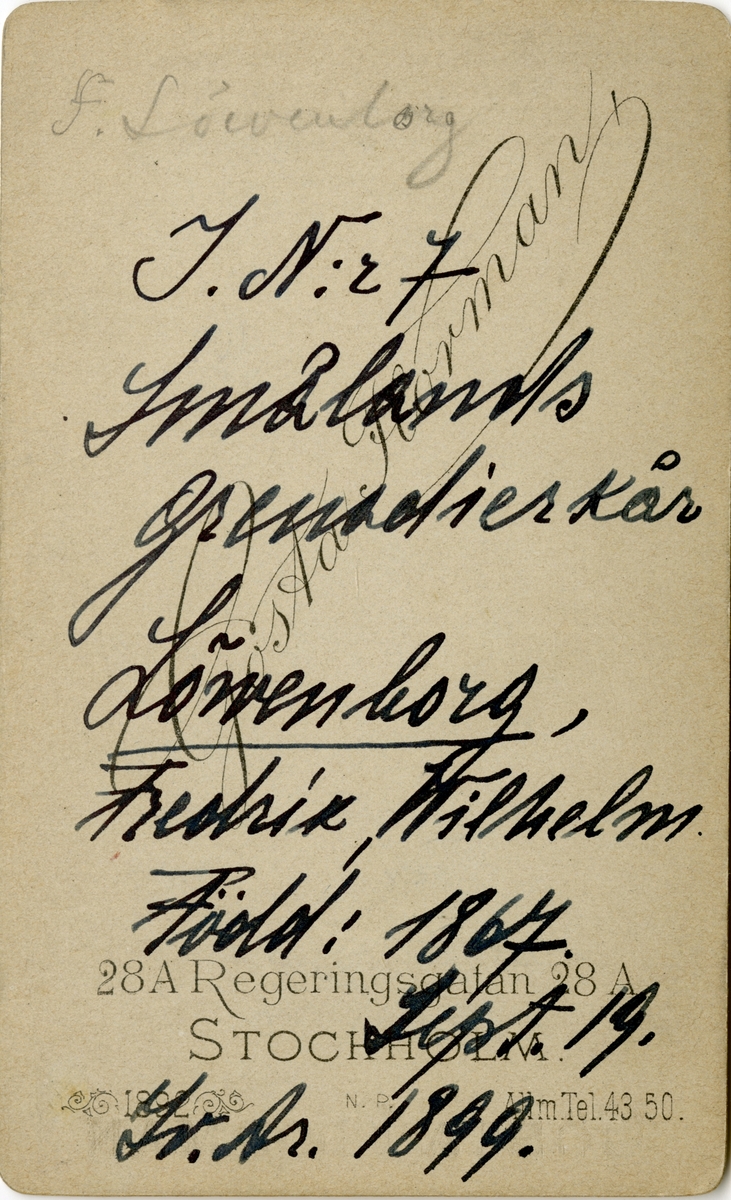 F. Löwenborg
I. N:r 7
Smålands
grenadierkår
Gösta Florman
Löwenborg,
Fredrik, Wilhelm.
Född: 1867.
28A Regeringsgatan 28 A
Sept. 19.
STOCKHOLM.
1892 N. P. Allm.Tel.43 50.
Lv. Ar. 1899.